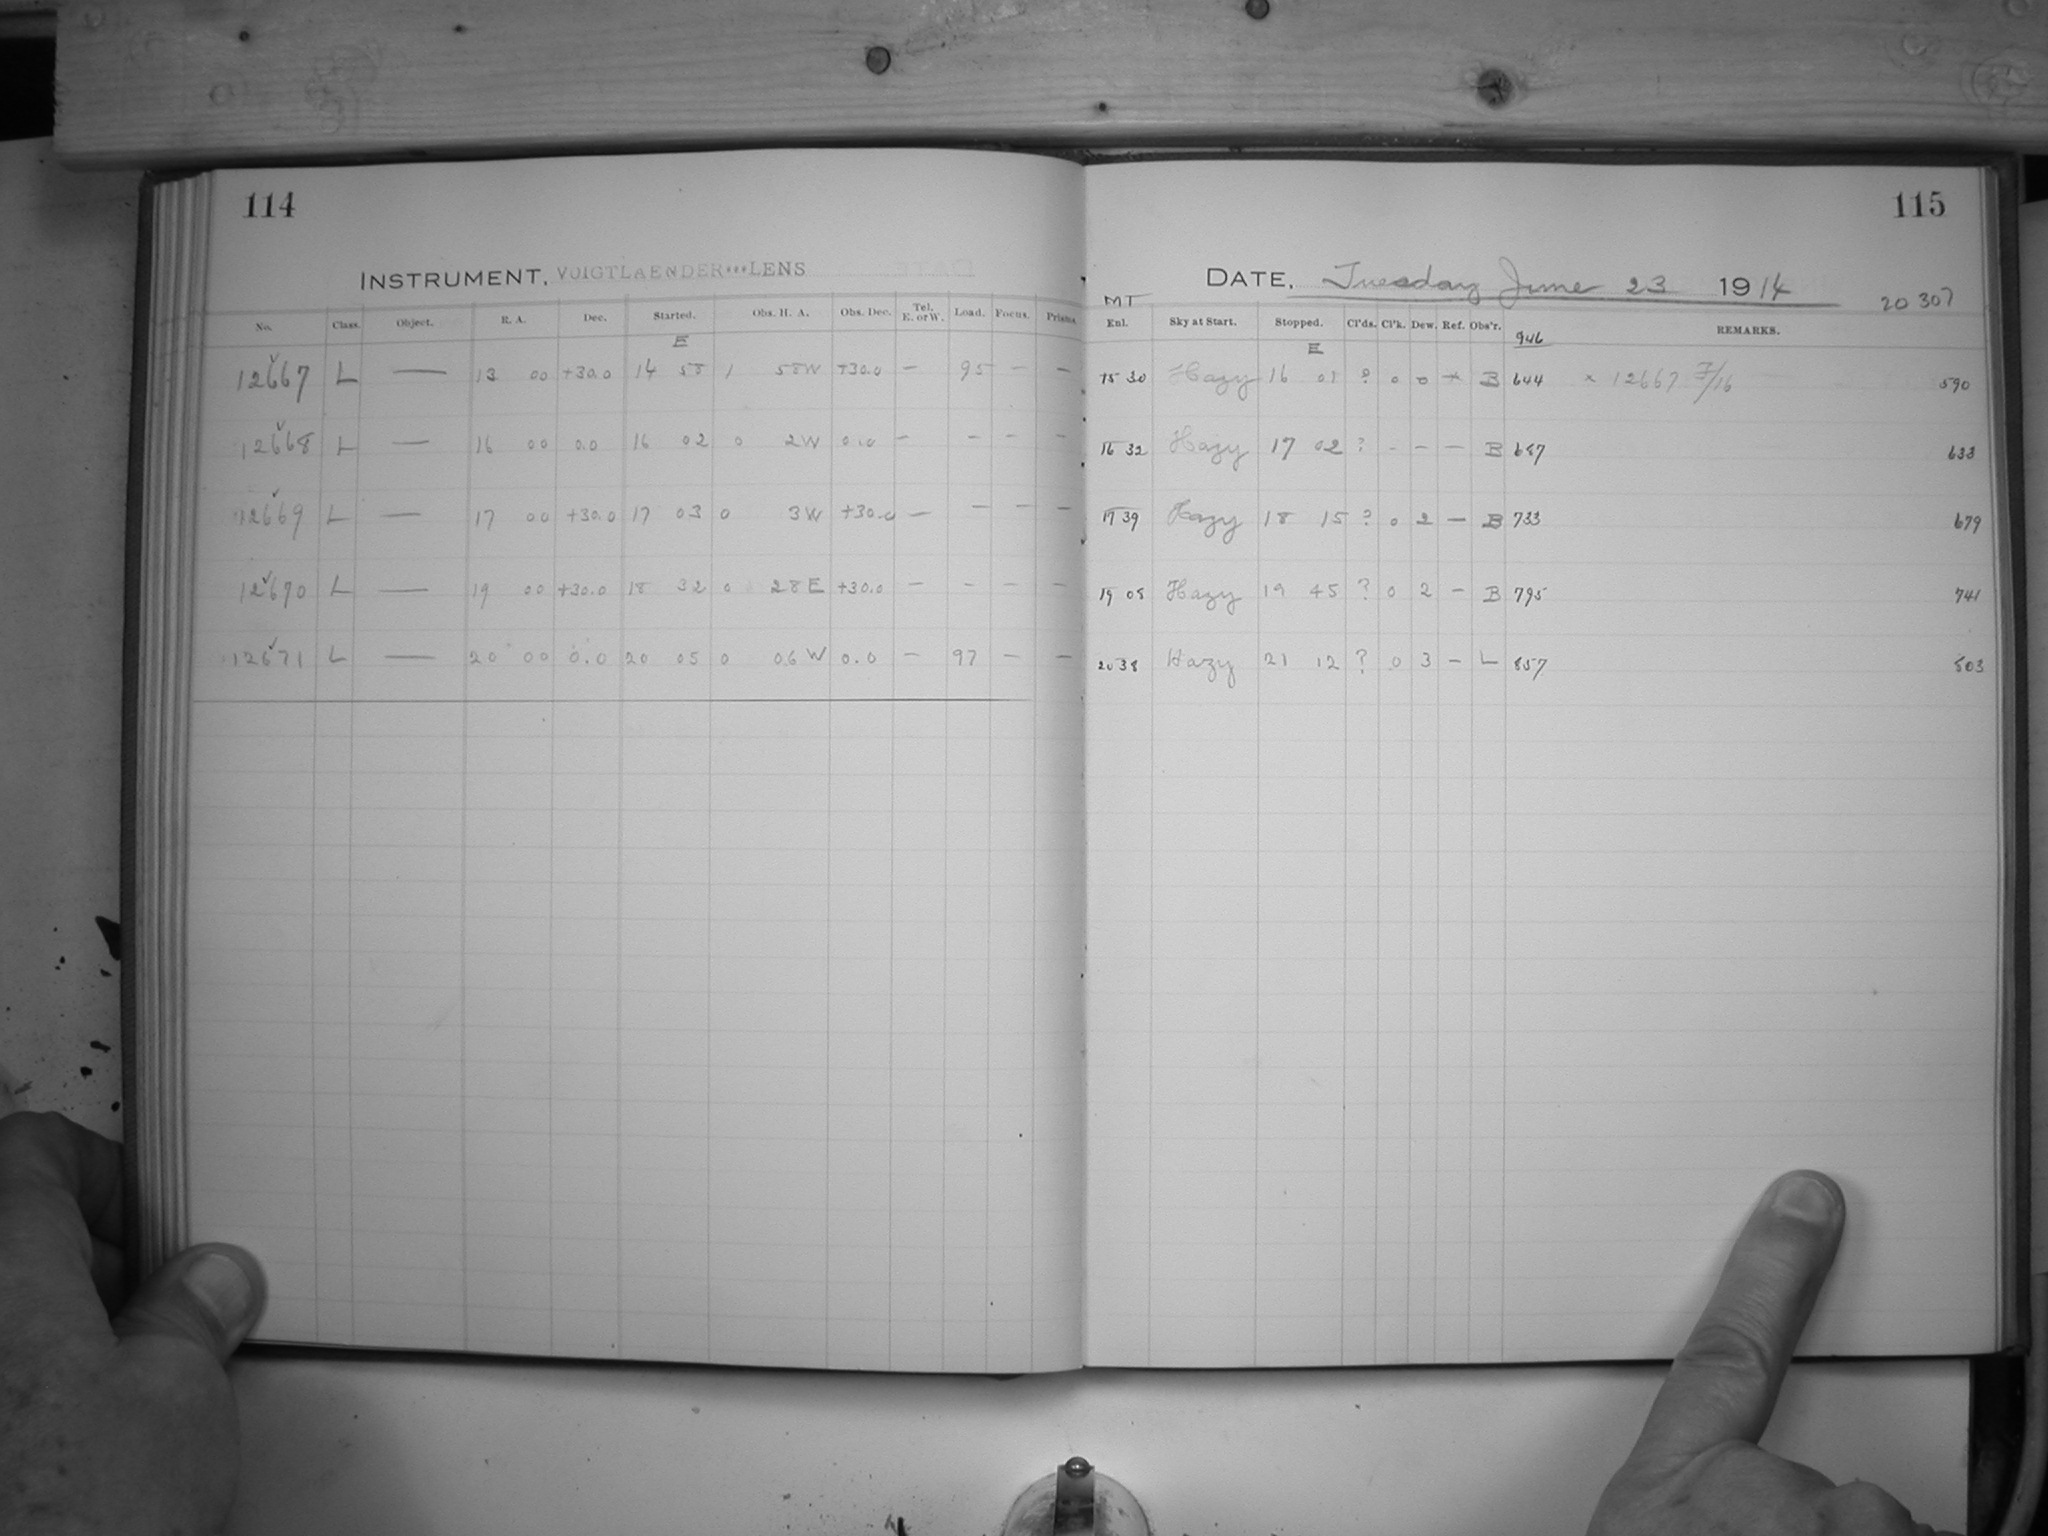 114
INSTRUMENT, VOIGTLAENDER LENS
No. Class. Object. R. A. Dec. Started. Obs. H. A. Obs. Dec. Tel. E. or W. Load. Focus. Prisms.
E
12667 L — 13 00 +30.0 14 58 1 58W +30.0 — 95 — —
12668 L — 16 00 0.0 16 02 0 2W 0.0 — — — —
12669 L — 17 00 +30.0 17 03 0 3W +30.0 — — — —
12670 L — 19 00 +30.0 18 32 0 28E +30.0 — — — —
12671 L — 20 00 0.0 20 05 0 06W 0.0 — 97 — —
115
DATE, Tuesday June 23 1914
MT 20 307
Enl. Sky at Start. Stopped. Cl'ds. Cl'k. Dew. Ref. Obs'r. REMARKS.
E 946
15 30 Hazy 16 01 ? 0 0 × B 644 × 12667 F/16 590
16 32 Hazy 17 02 ? - — — B 687 633
17 39 Hazy 18 15 ? 0 2 — B 733 679
19 08 Hazy 19 45 ? 0 2 — B 795 741
20 38 Hazy 21 12 ? 0 3 — L 857 803